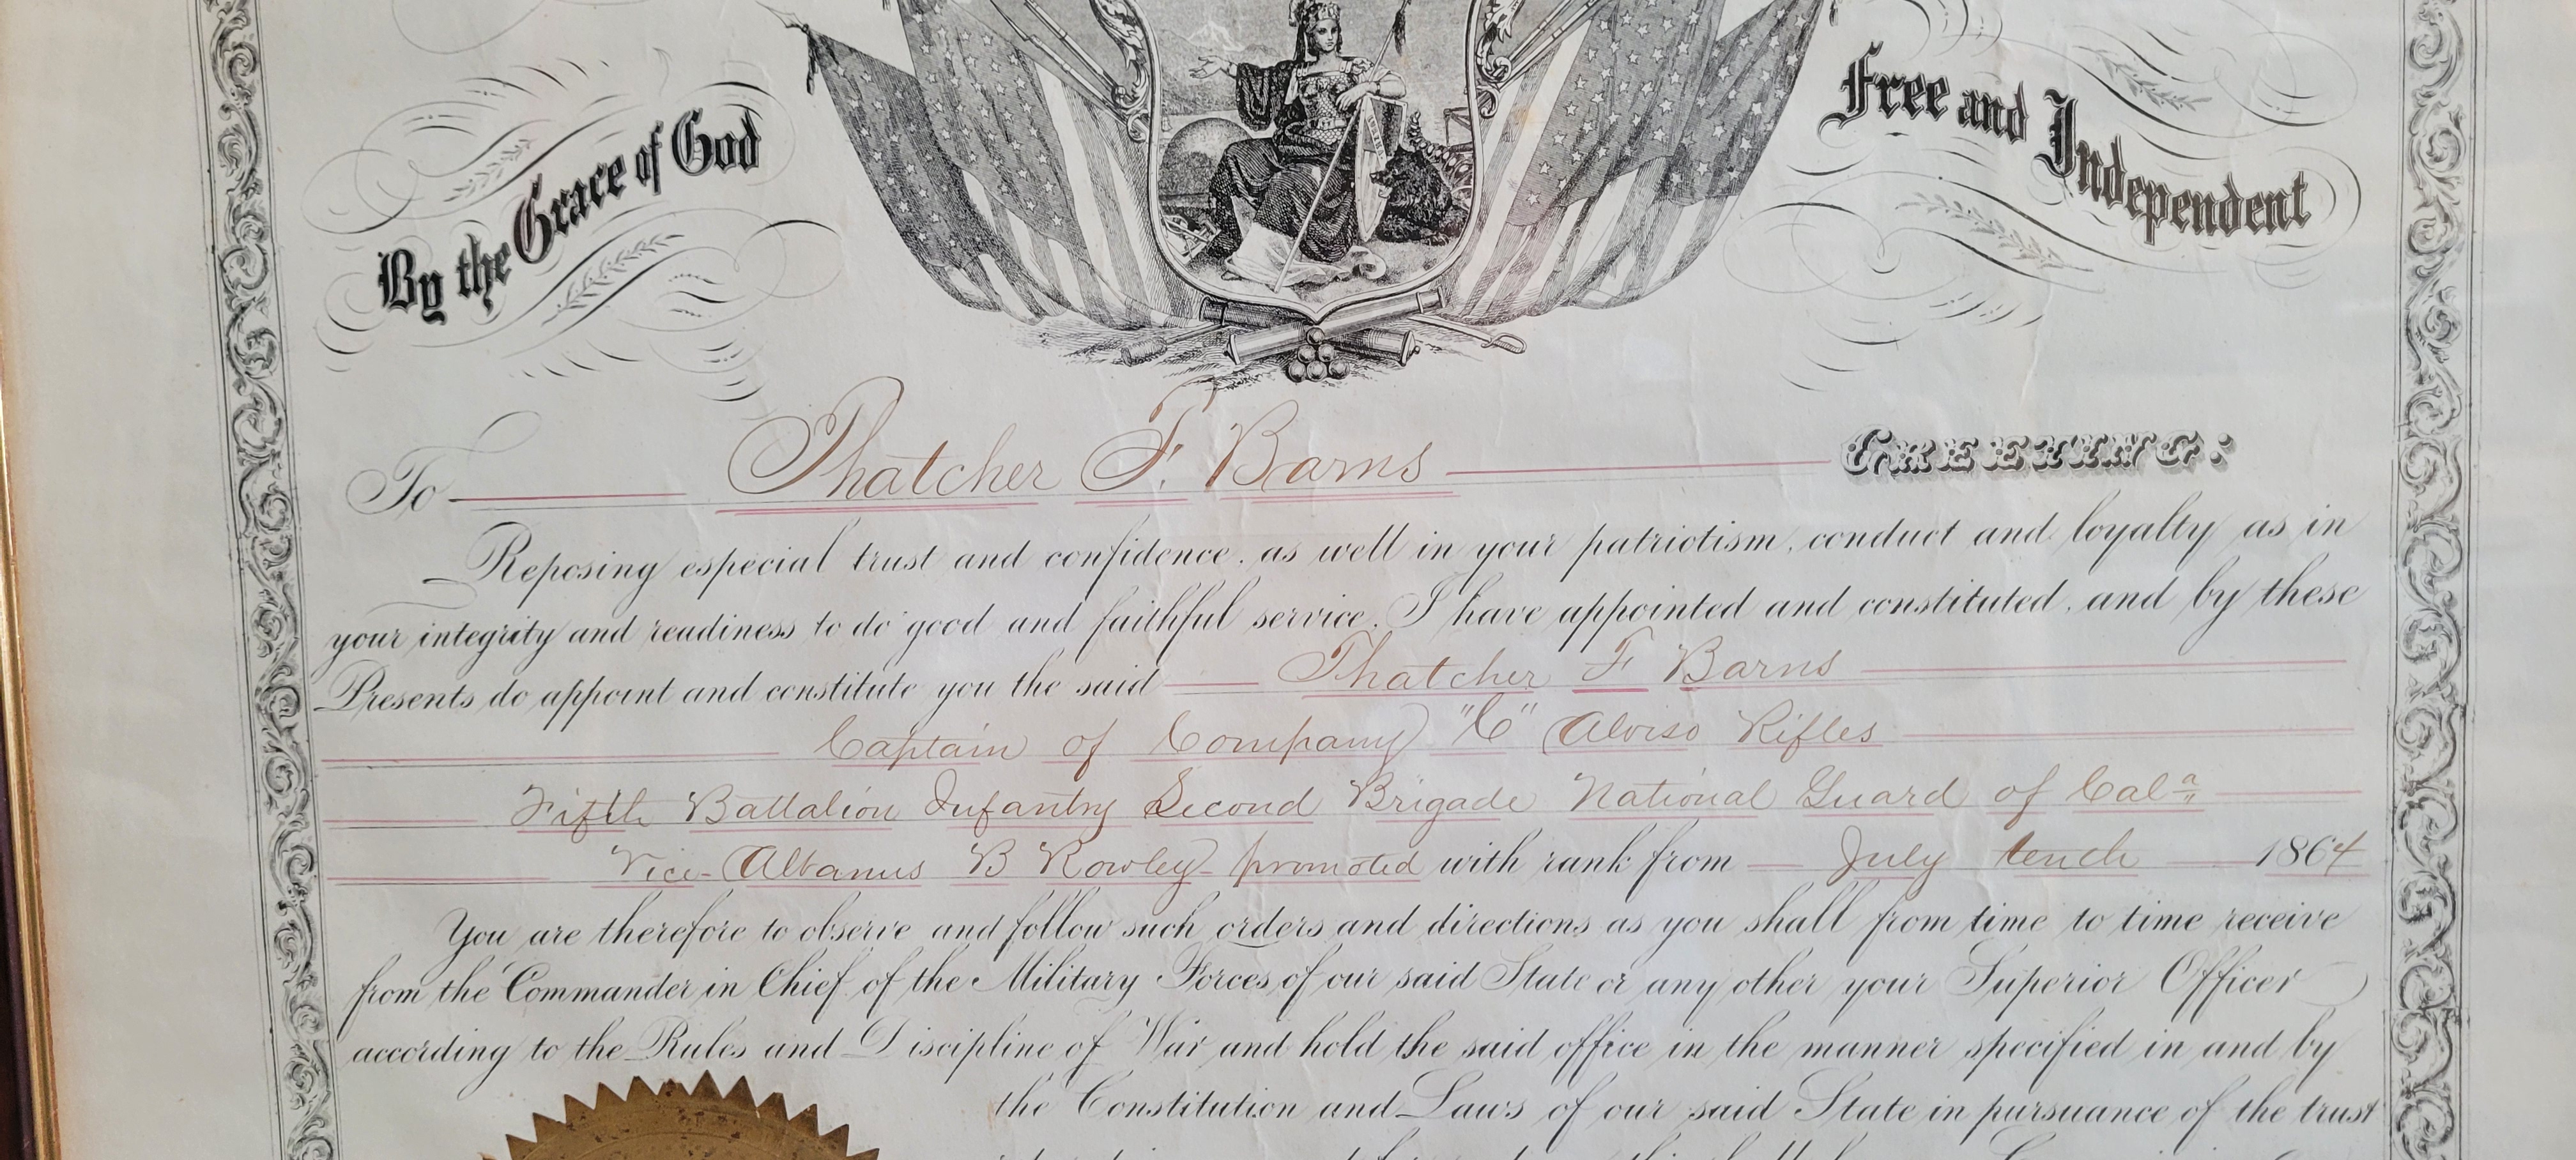 By the Grace of God
Free and Independent
To Thatcher F. Barns GREETING:
Reposing especial trust and confidence, as well in your patriotism, conduct and loyalty as in
your integrity and readiness to do good and faithful service, I have appointed and constituted, and by these
Presents do appoint and constitute you the said Thatcher F Barns
Captain of Company "C" Alviso Rifles
Fifth Battalion Infantry Second Brigade National Guard of Calª
Vice Albanus B Rowley promoted with rank from July tenth 1864
You are therefore to observe and follow such orders and directions as you shall from time to time receive
from the Commander in Chief of the Military Forces of our said State or any other your Superior Officer
according to the Rules and Discipline of War and hold the said office in the manner specified in and by
the Constitution and Laws of our said State in pursuance of the trust